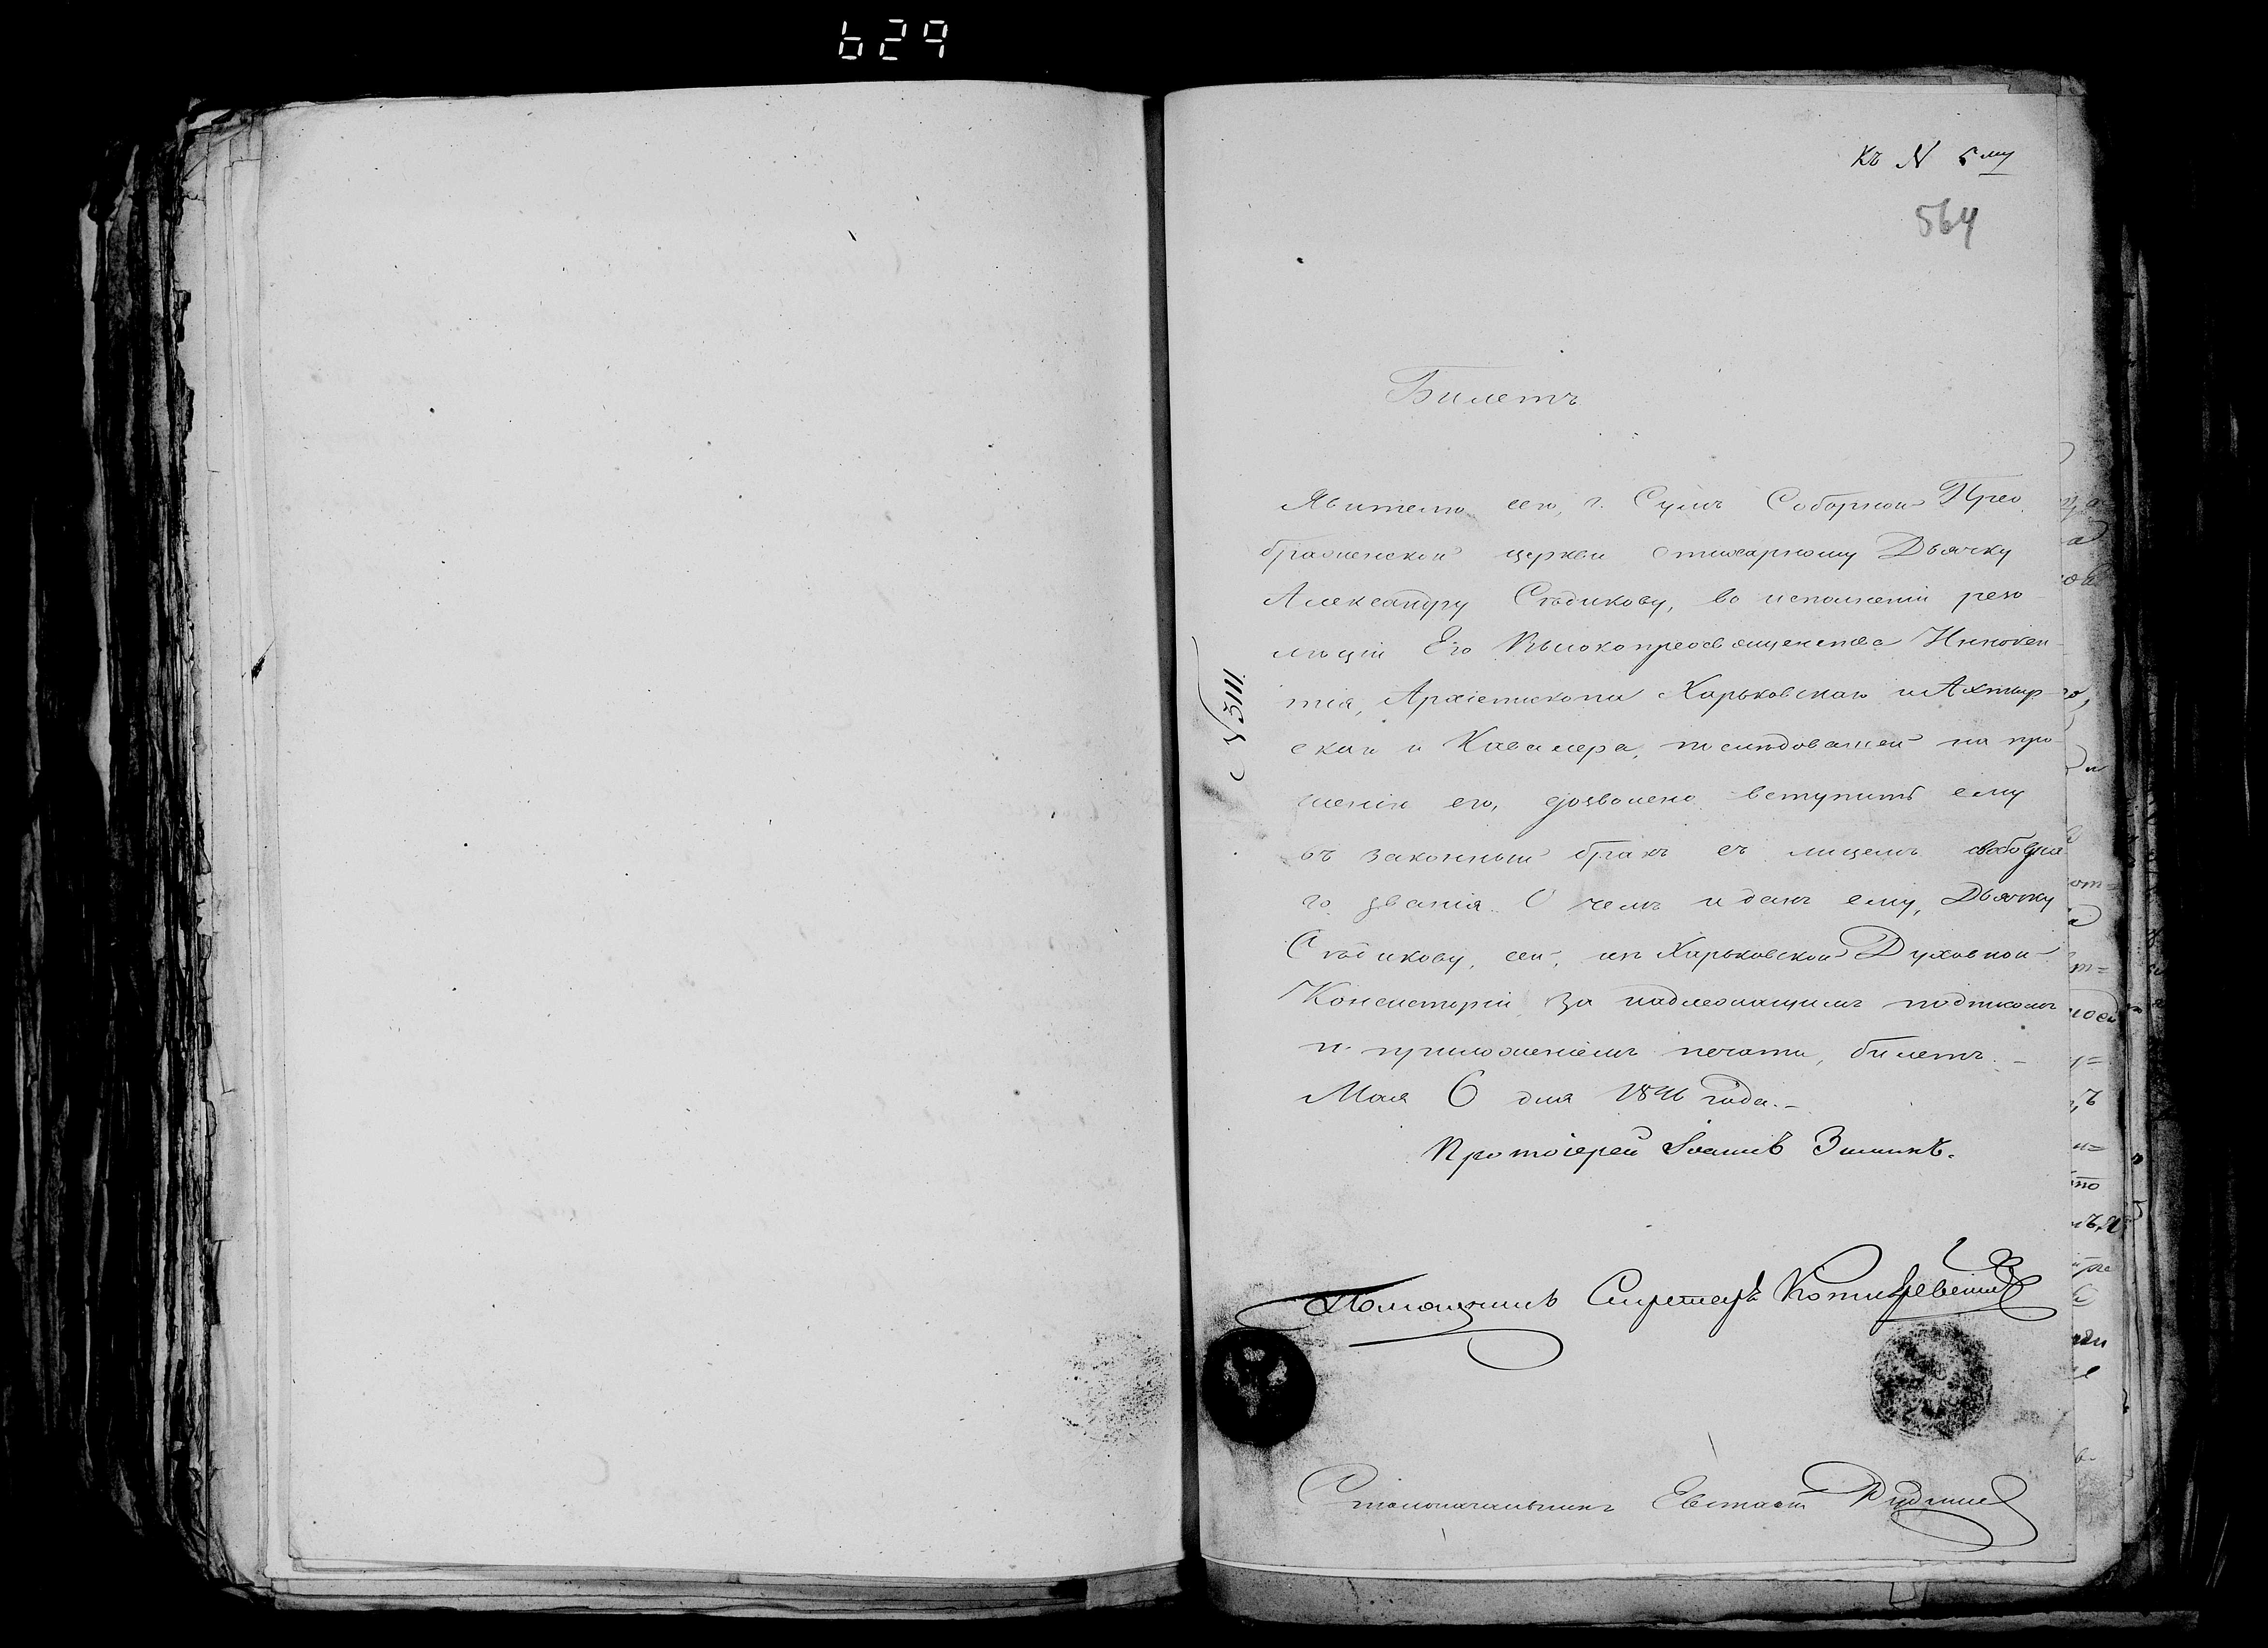 629
Къ N 5му
564
Билетъ
Явителю сего, г. Сумъ Соборной Прео
браженской церкви стихарному Дьячку
Александру Сѣдикову, во исполненіи резо-
люціи Его Высокопреосвященства Иннокен-
тія, Архіепископа Харьковскаго и Ахтыр-
скаго и Кавалера, послѣдовавшей на про
шеніи его, дозволено вступить ему
въ законный бракъ съ лицемъ свободна
го званія. О чемъ и данъ ему, Дьячку
Сѣдикову, сей, изъ Харьковской Духовной
Консисторіи за надлежащимъ подписомъ
и приложеніемъ печати, билетъ. –
Мая 6 дня 1846 года. –
N 3111
Протоіерей Іоаннъ Зиминъ.
Секретарь
Столоначальникъ Евстафій